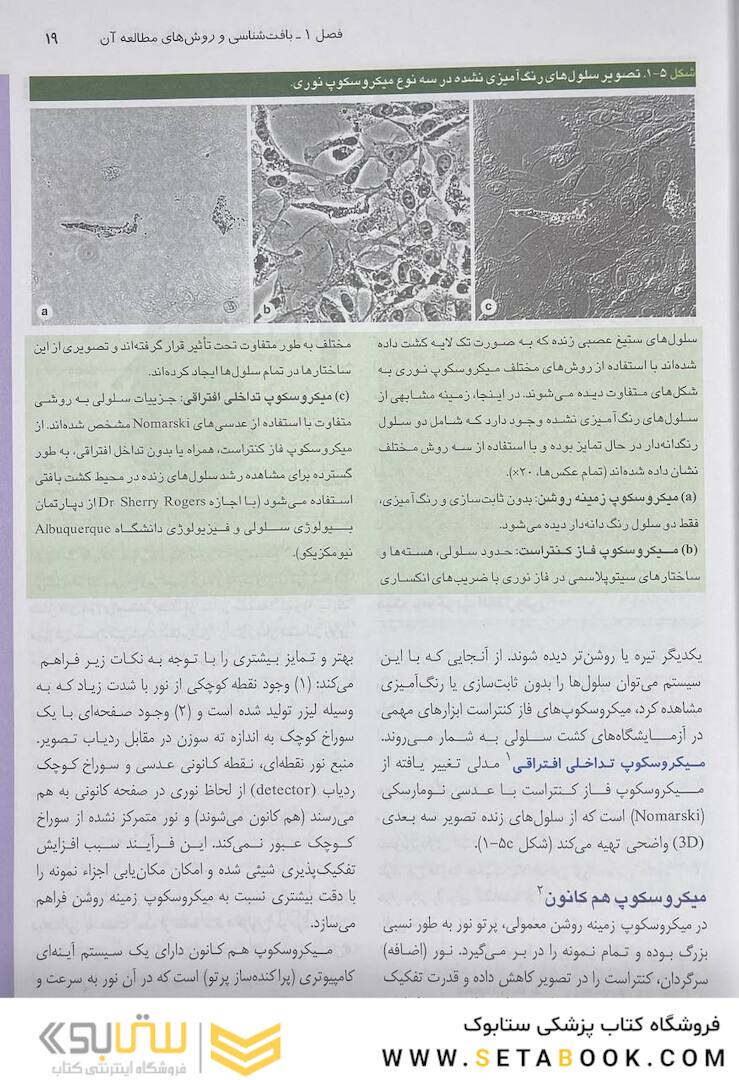 فصل ۱ ـ بافت‌شناسی و روش‌های مطالعه آن
۱۹
شکل ۵-۱. تصویر سلول‌های رنگ‌آمیزی نشده در سه نوع میکروسکوپ نوری.
a
b
c
سلول‌های ستیغ عصبی زنده که به صورت تک لایه کشت داده
شده‌اند با استفاده از روش‌های مختلف میکروسکوپ نوری به
شکل‌های متفاوت دیده می‌شوند. در اینجا، زمینه مشابهی از
سلول‌های رنگ‌آمیزی نشده وجود دارد که شامل دو سلول
رنگدانه‌دار در حال تمایز بوده و با استفاده از سه روش مختلف
نشان داده شده‌اند (تمام عکس‌ها، ۲۰×).
(a) میکروسکوپ زمینه روشن: بدون ثابت‌سازی و رنگ‌آمیزی،
فقط دو سلول رنگ دانه‌دار دیده می‌شود.
(b) میکروسکوپ فاز کنتراست: حدود سلولی، هسته‌ها و
ساختارهای سیتوپلاسمی در فاز نوری با ضریب‌های انکساری
مختلف به طور متفاوت تحت تأثیر قرار گرفته‌اند و تصویری از این
ساختارها در تمام سلول‌ها ایجاد کرده‌اند.
(c) میکروسکوپ تداخلی افتراقی: جزییات سلولی به روشی
متفاوت با استفاده از عدسی‌های Nomarski مشخص شده‌اند. از
میکروسکوپ فاز کنتراست، همراه یا بدون تداخل افتراقی، به طور
گسترده برای مشاهده رشد سلول‌های زنده در محیط کشت بافتی
استفاده می‌شود (با اجازه Dr Sherry Rogers از دپارتمان
بیولوژی سلولی و فیزیولوژی دانشگاه Albuquerque
نیومکزیکو).
یکدیگر تیره یا روشن‌تر دیده شوند. از آنجایی که با این
سیستم می‌توان سلول‌ها را بدون ثابت‌سازی یا رنگ‌آمیزی
مشاهده کرد، میکروسکوپ‌های فاز کنتراست ابزارهای مهمی
در آزمایشگاه‌های کشت سلولی به شمار می‌روند.
میکروسکوپ تداخلی افتراقی۱ مدلی تغییر یافته از
میکروسکوپ فاز کنتراست با عدسی نومارسکی
(Nomarski) است که از سلول‌های زنده تصویر سه بعدی
(3D) واضحی تهیه می‌کند (شکل ۵c-۱).
میکروسکوپ هم کانون۲
در میکروسکوپ زمینه روشن معمولی، پرتو نور به طور نسبی
بزرگ بوده و تمام نمونه را در بر می‌گیرد. نور (اضافه)
سرگردان، کنتراست را در تصویر کاهش داده و قدرت تفکیک
بهتر و تمایز بیشتری را با توجه به نکات زیر فراهم
می‌کند: (۱) وجود نقطه کوچکی از نور با شدت زیاد که به
وسیله لیزر تولید شده است و (۲) وجود صفحه‌ای با یک
سوراخ کوچک به اندازه ته سوزن در مقابل ردیاب تصویر.
منبع نور نقطه‌ای، نقطه کانونی عدسی و سوراخ کوچک
ردیاب (detector) از لحاظ نوری در صفحه کانونی به هم
می‌رسند (هم کانون می‌شوند) و نور متمرکز نشده از سوراخ
کوچک عبور نمی‌کند. این فرآیند سبب افزایش
تفکیک‌پذیری شیئی شده و امکان مکان‌یابی اجزاء نمونه را
با دقت بیشتری نسبت به میکروسکوپ زمینه روشن فراهم
می‌سازد.
میکروسکوپ هم کانون دارای یک سیستم آینه‌ای
کامپیوتری (پراکنده‌ساز پرتو) است که در آن نور به سرعت و
فروشگاه کتاب پزشکی ستابوک
WWW.SETABOOK.COM
ستابوک
فروشگاه اینترنتی کتاب